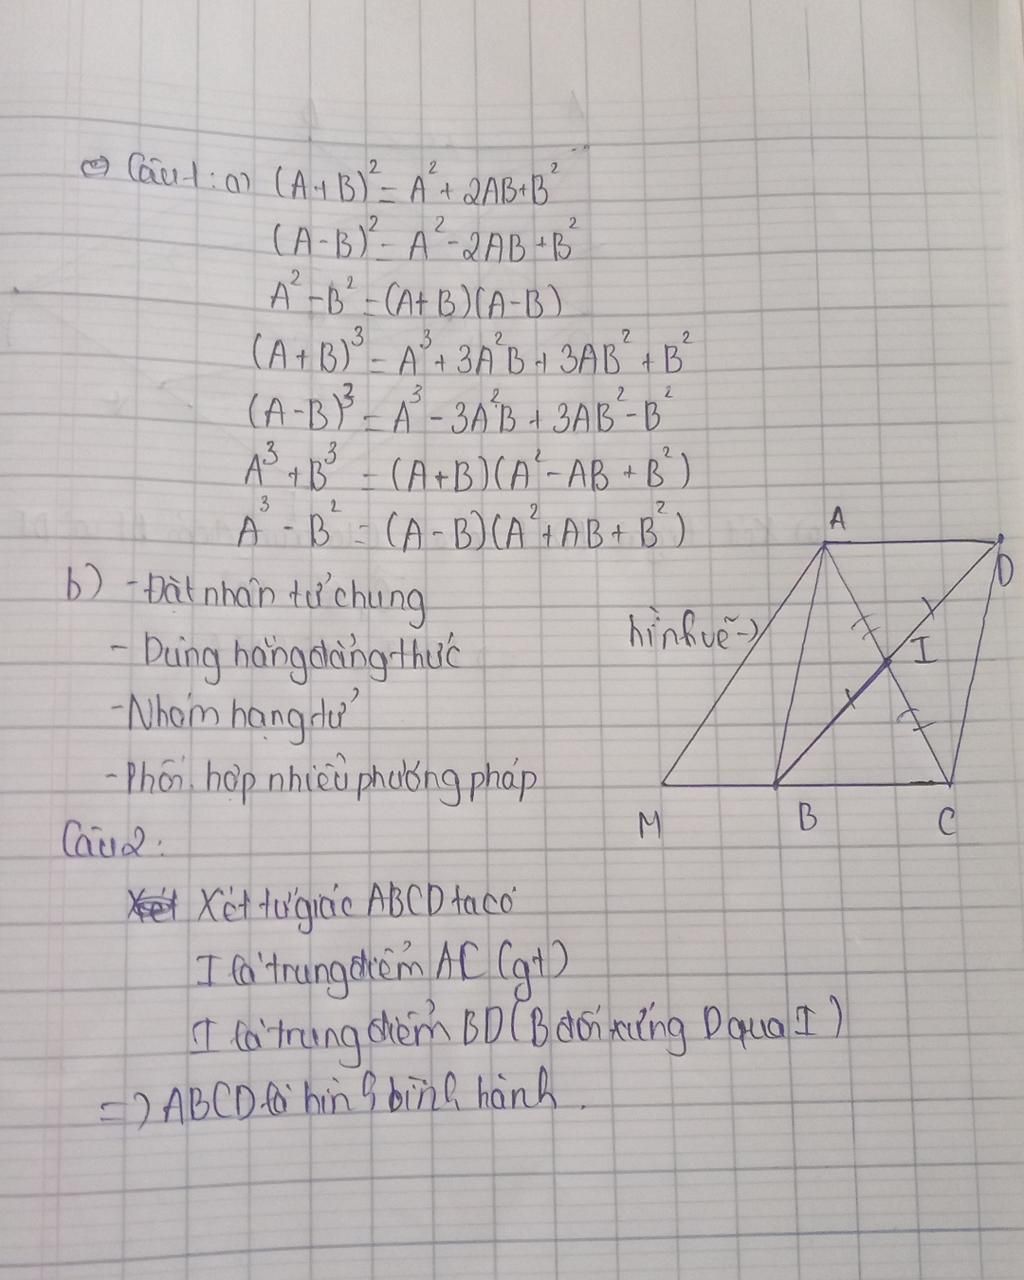 ⇔ Câu 1: a) (A+B)² = A² + 2AB + B²
(A-B)² = A² - 2AB + B²
A² - B² = (A+B)(A-B)
(A+B)³ = A³ + 3A²B + 3AB² + B²
(A-B)³ = A³ - 3A²B + 3AB² - B²
A³ + B³ = (A+B)(A² - AB + B²)
A³ - B² = (A-B)(A² + AB + B²)
b) - Đặt nhân tử chung
- Dùng hằng đẳng thức
- Nhóm hạng tử
- Phối hợp nhiều phương pháp
hình vẽ →
A
D
I
M
B
C
Câu 2:
Xét tứ giác ABCD ta có
I là trung điểm AC (gt)
I là trung điểm BD (B đối xứng D qua I)
=> ABCD là hình bình hành.